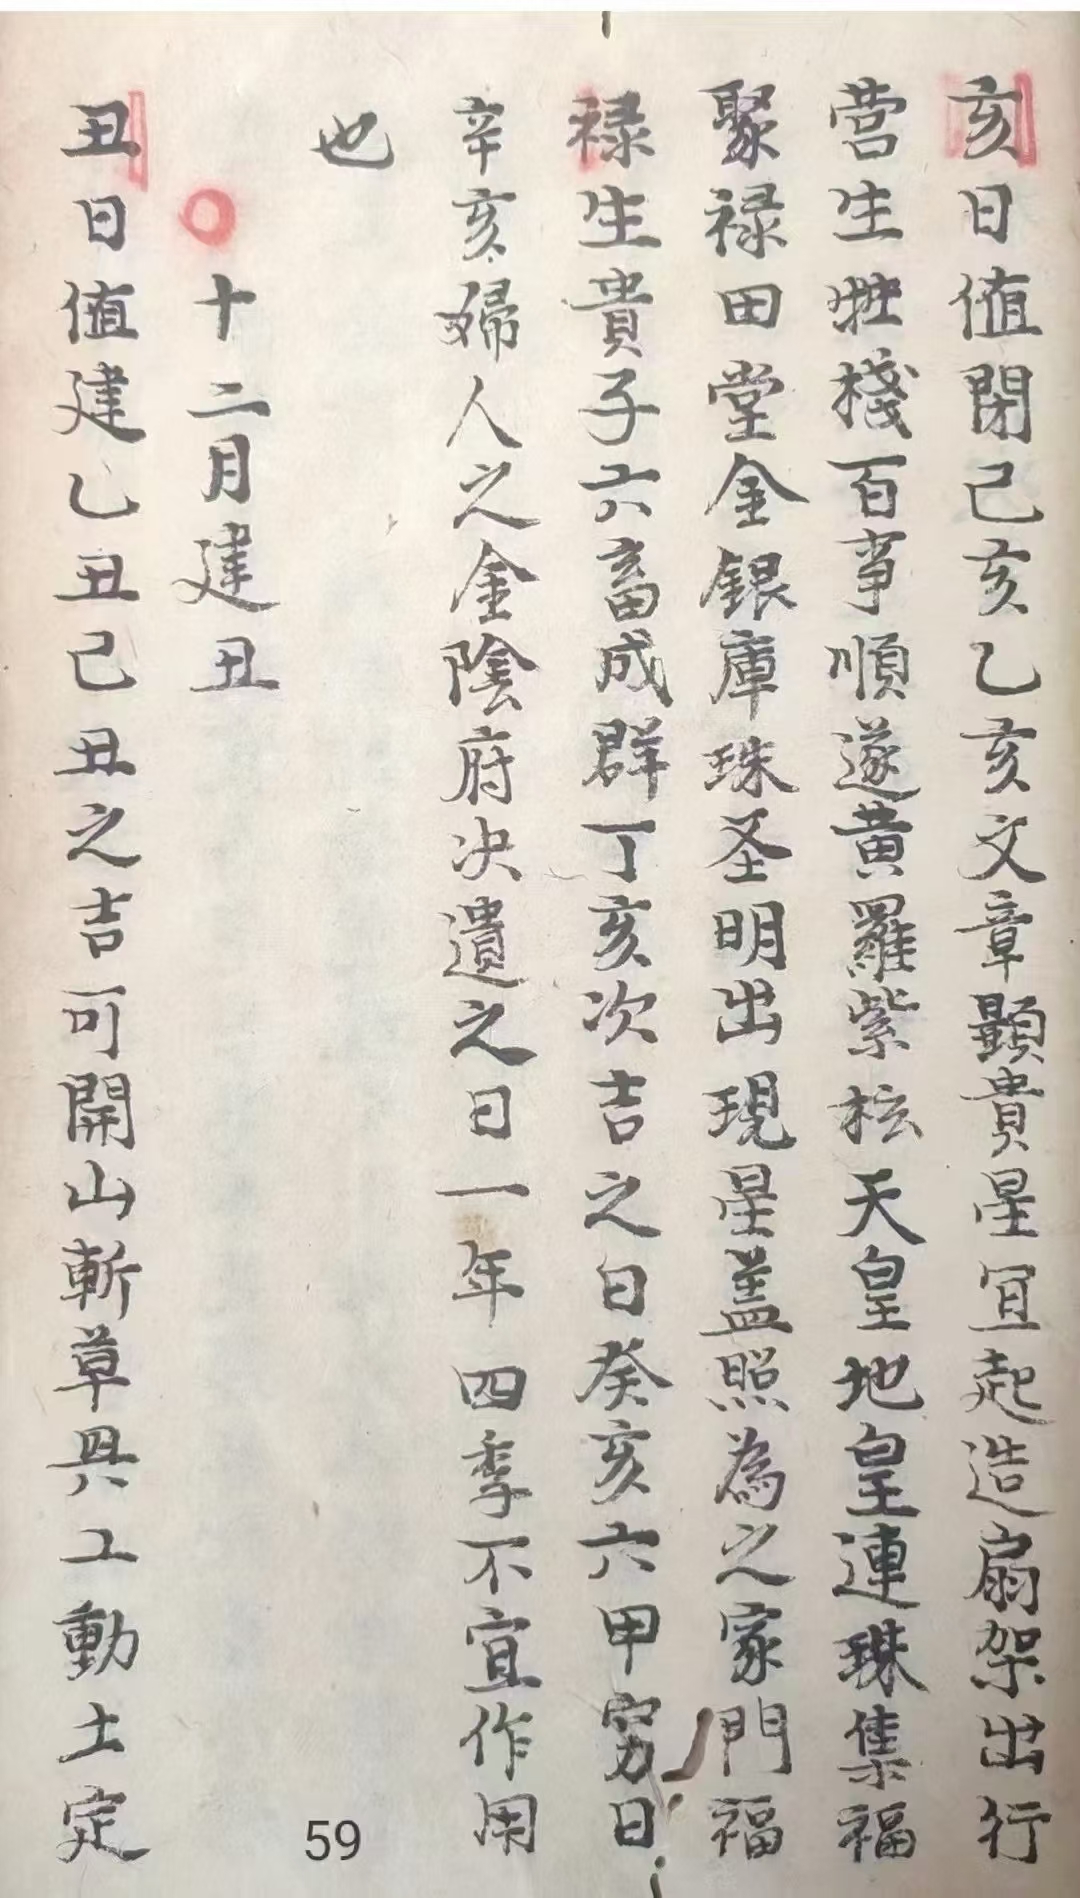 亥日值閉己亥乙亥文章顯貴星宜起造扇架出行
营生牲棧百事順遂黃羅紫柆天皇地皇連珠集福
聚禄田堂金銀庫珠圣明出現星盖照為之家門福
禄生貴子六畜成群丁亥次吉之日癸亥六甲窮日
辛亥婦人之金陰府决遺之日一年四季不宜作用
也
十二月建丑
丑日值建乙丑己丑之吉可開山斬草興工動土定
59